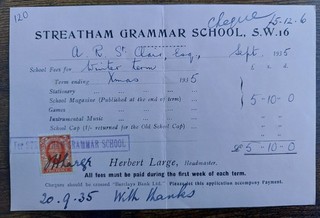 120
Cheque
£5-12-6
STREATHAM GRAMMAR SCHOOL, S.W.16
A. R. St Clair, Esq., Sept. 1935
School Fees for Winter term
Term ending Xmas 1935
Stationery
School Magazine (Published at the end of term) 5-10-0
Games
Instrumental Music
School Cap (1/- returned for the Old School Cap)
£ 5-10-0
GRAMMAR SCHOOL
H Large
Herbert Large, Headmaster.
All fees must be paid during the first week of each term.
Cheques should be crossed "Barclays Bank Ltd." Please let this application accompany Payment.
20.9.35 With thanks